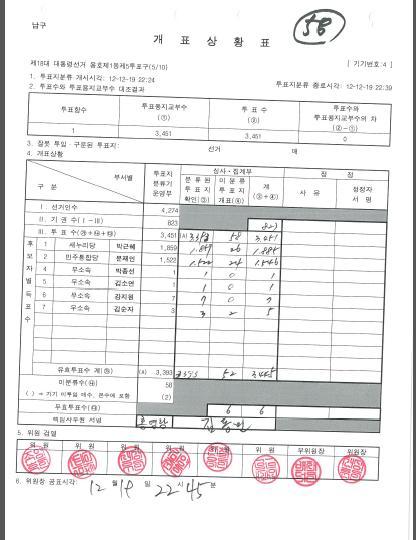 남구
58
개 표 상 황 표
제18대 대통령선거 용호제1동제5투표구(5/10)
[ 기기번호:4 ]
1. 투표지분류 개시시각: 12-12-19 22:24
투표지분류 종료시각: 12-12-19 22:39
2. 투표수와 투표용지교부수 대조결과
투표함수 투표용지교부수 (①) 투 표 수 (②) 투표수와 투표용지교부수의 차 (②-①)
1 3,451 3,451 0
3. 잘못 투입·구분된 투표지: 선거 매
4. 개표상황
구 분 부서별 투표지 분류기 운영부 심사·집계부 잠 정
분 류 된 투 표 지 확인(③) 미 분 류 투 표 지 개표(④) 계 (③+④) 사 유 성 명
Ⅰ. 선거인수 4,274
Ⅱ. 기 권 수 (Ⅰ-Ⅲ) 823 823
Ⅲ. 투 표 수 3,451 (A) 58 3,451
후보자별 득표수
1 새누리당 박근혜 1,859 1,859 26 1,885
2 민주통합당 문재인 1,522 1,522 24 1,546
4 무소속 박종선 1 1 0 1
5 무소속 김소연 1 1 0 1
6 무소속 강지원 7 7 0 7
7 무소속 김순자 3 3 2 5
유효투표수 계 (A) 3,393 3393 52 3,445
미분류수 58
( ) → 기기 미투입 매수, 본수에 포함 (2)
무효투표수 6 6
책임사무원 서명
5. 위원 검열
위 원 위 원 위 원 위 원 위 원 위 원 부위원장 위원장
6. 위원장 공표시각: 12 월 19 일 22시 45분